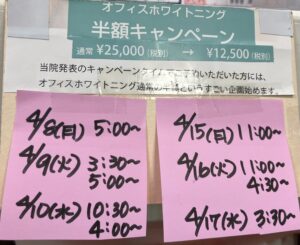 オフィスホワイトニング
半額キャンペーン
通常 ¥25,000(税別) → ¥12,500(税別)
当院発表のキャンペーンタイムでご予約いただいた方には、
オフィスホワイトニング通常の半額というすごい企画始めます。
4/8(日) 5:00~
4/9(火) 3:30~
5:00~
4/10(水) 10:30~
4:00~
4/15(日) 11:00~
4/16(火) 11:00~
4:30~
4/17(水) 3:30~